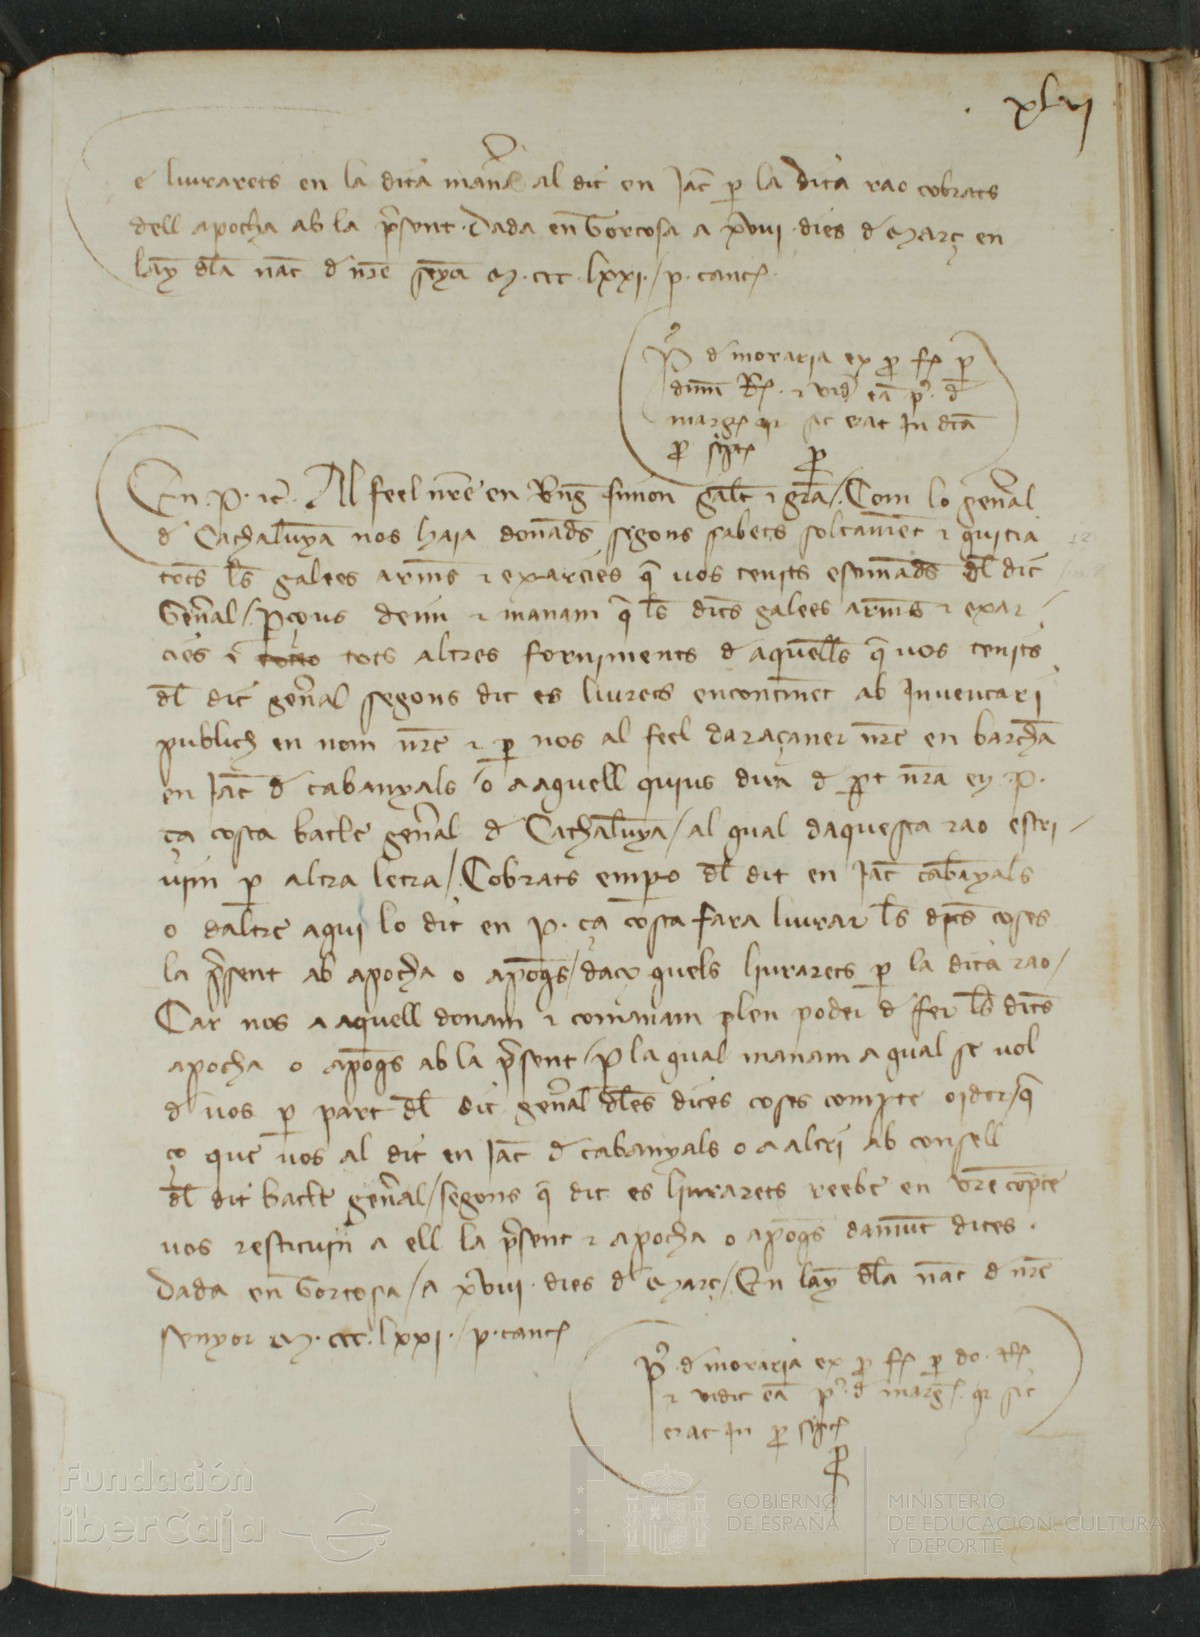 xlvj
e liurarets en la dita man̄a al dit en Jac̄ p la dita rao cobrats
dell apocha ab la p̄sent. Dada en Tortosa a xviii dies d Març en
lay dl̄a nat̄ d nr̄e M. ccc lxxi. / p. canc
P d moraria ex p
pro
En P. ic̄. Al feel nr̄e en simon galt i gr̄a /. Com lo gen̄al
d Cathaluya nos haia donads segons sabets soltament i quitia
tots ls galees arms i exarcies q̄ vos tenits dl dit
Gen̄al / p çous deim i manam q̄ ls dits galees arms i exar-
cies i tots altres forniments d aquells q̄ vos tenits
dl dit gen̄al segons dit es liurets encontinent ab Inventari
publich en nom nr̄e i p nos al feel daraçaner nr̄e en barch̄a
en Jac̄ d cabanyals o a aquell quius dira d p̄t nr̄a en P.
ça costa batle gen̄al d Cathaluya / al qual daquesta rao escri-
vim p altra letra /. Cobrats empo dl dit en Jac̄ cabanyals
o daltre aqui lo dit en P. ça costa fara liurar ls dits coses
la p̄sent ab apocha o apoqs / daço quels liurarets p la dita rao /
Car nos a aquell donam i comanam plen poder d fer ls dits
apocha o apoqs ab la p̄sent / p la qual manam a qual se vol
d vos p part dl dit gen̄al dles dites coses compte oidor / q̄
ço que vos al dit en Jac̄ d cabanyals o a altri ab consell
dl dit batle gen̄al / segons q̄ dit es liurarets reebe en vr̄e compte
vos restituin a ell la p̄sent i apocha o apoqs damunt dites.
Dada en Tortosa / a xviii dies d Març / En lay dl̄a nat̄ d nr̄e
senyor M. ccc. lxxi. / p. canc
P d moraria ex p
i vidit
erat in p
Fundación
iberCaja
GOBIERNO
DE ESPAÑA
MINISTERIO
DE EDUCACIÓN, CULTURA
Y DEPORTE